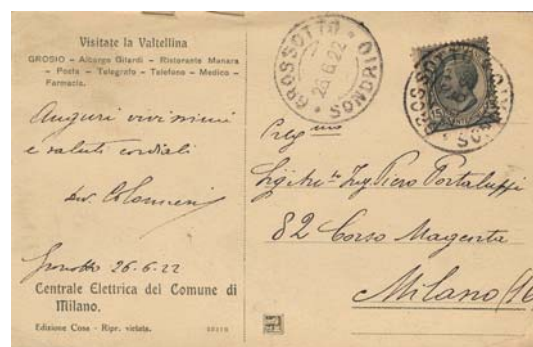 Visitate la Valtellina
GROSIO – Albergo Gilardi – Ristorante Manara
– Posta – Telegrafo – Telefono – Medico –
Farmacia.
Auguri vivissimi
e saluti cordiali
Grosotto 26-6-22
Centrale Elettrica del Comune di
Milano.
Edizione Cosa - Ripr. vietata.
GROSSOTTO
26.6.22
SONDRIO
GROSSOTTO
SONDRIO
15
Preg mo
Sig Arch. to Ing Piero Portaluppi
82 Corso Magenta
Milano